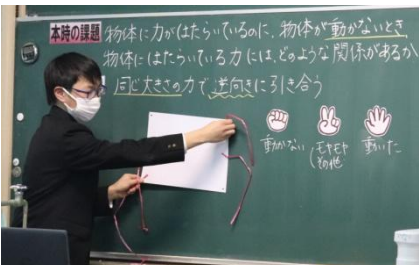 本時の課題
物体に力がはたらいているのに、物体が動かないとき
物体にはたらいている力には、どのような関係があるか
同じ大きさの力で逆向きに引き合う
動かない
モヤモヤ
その他
動いた